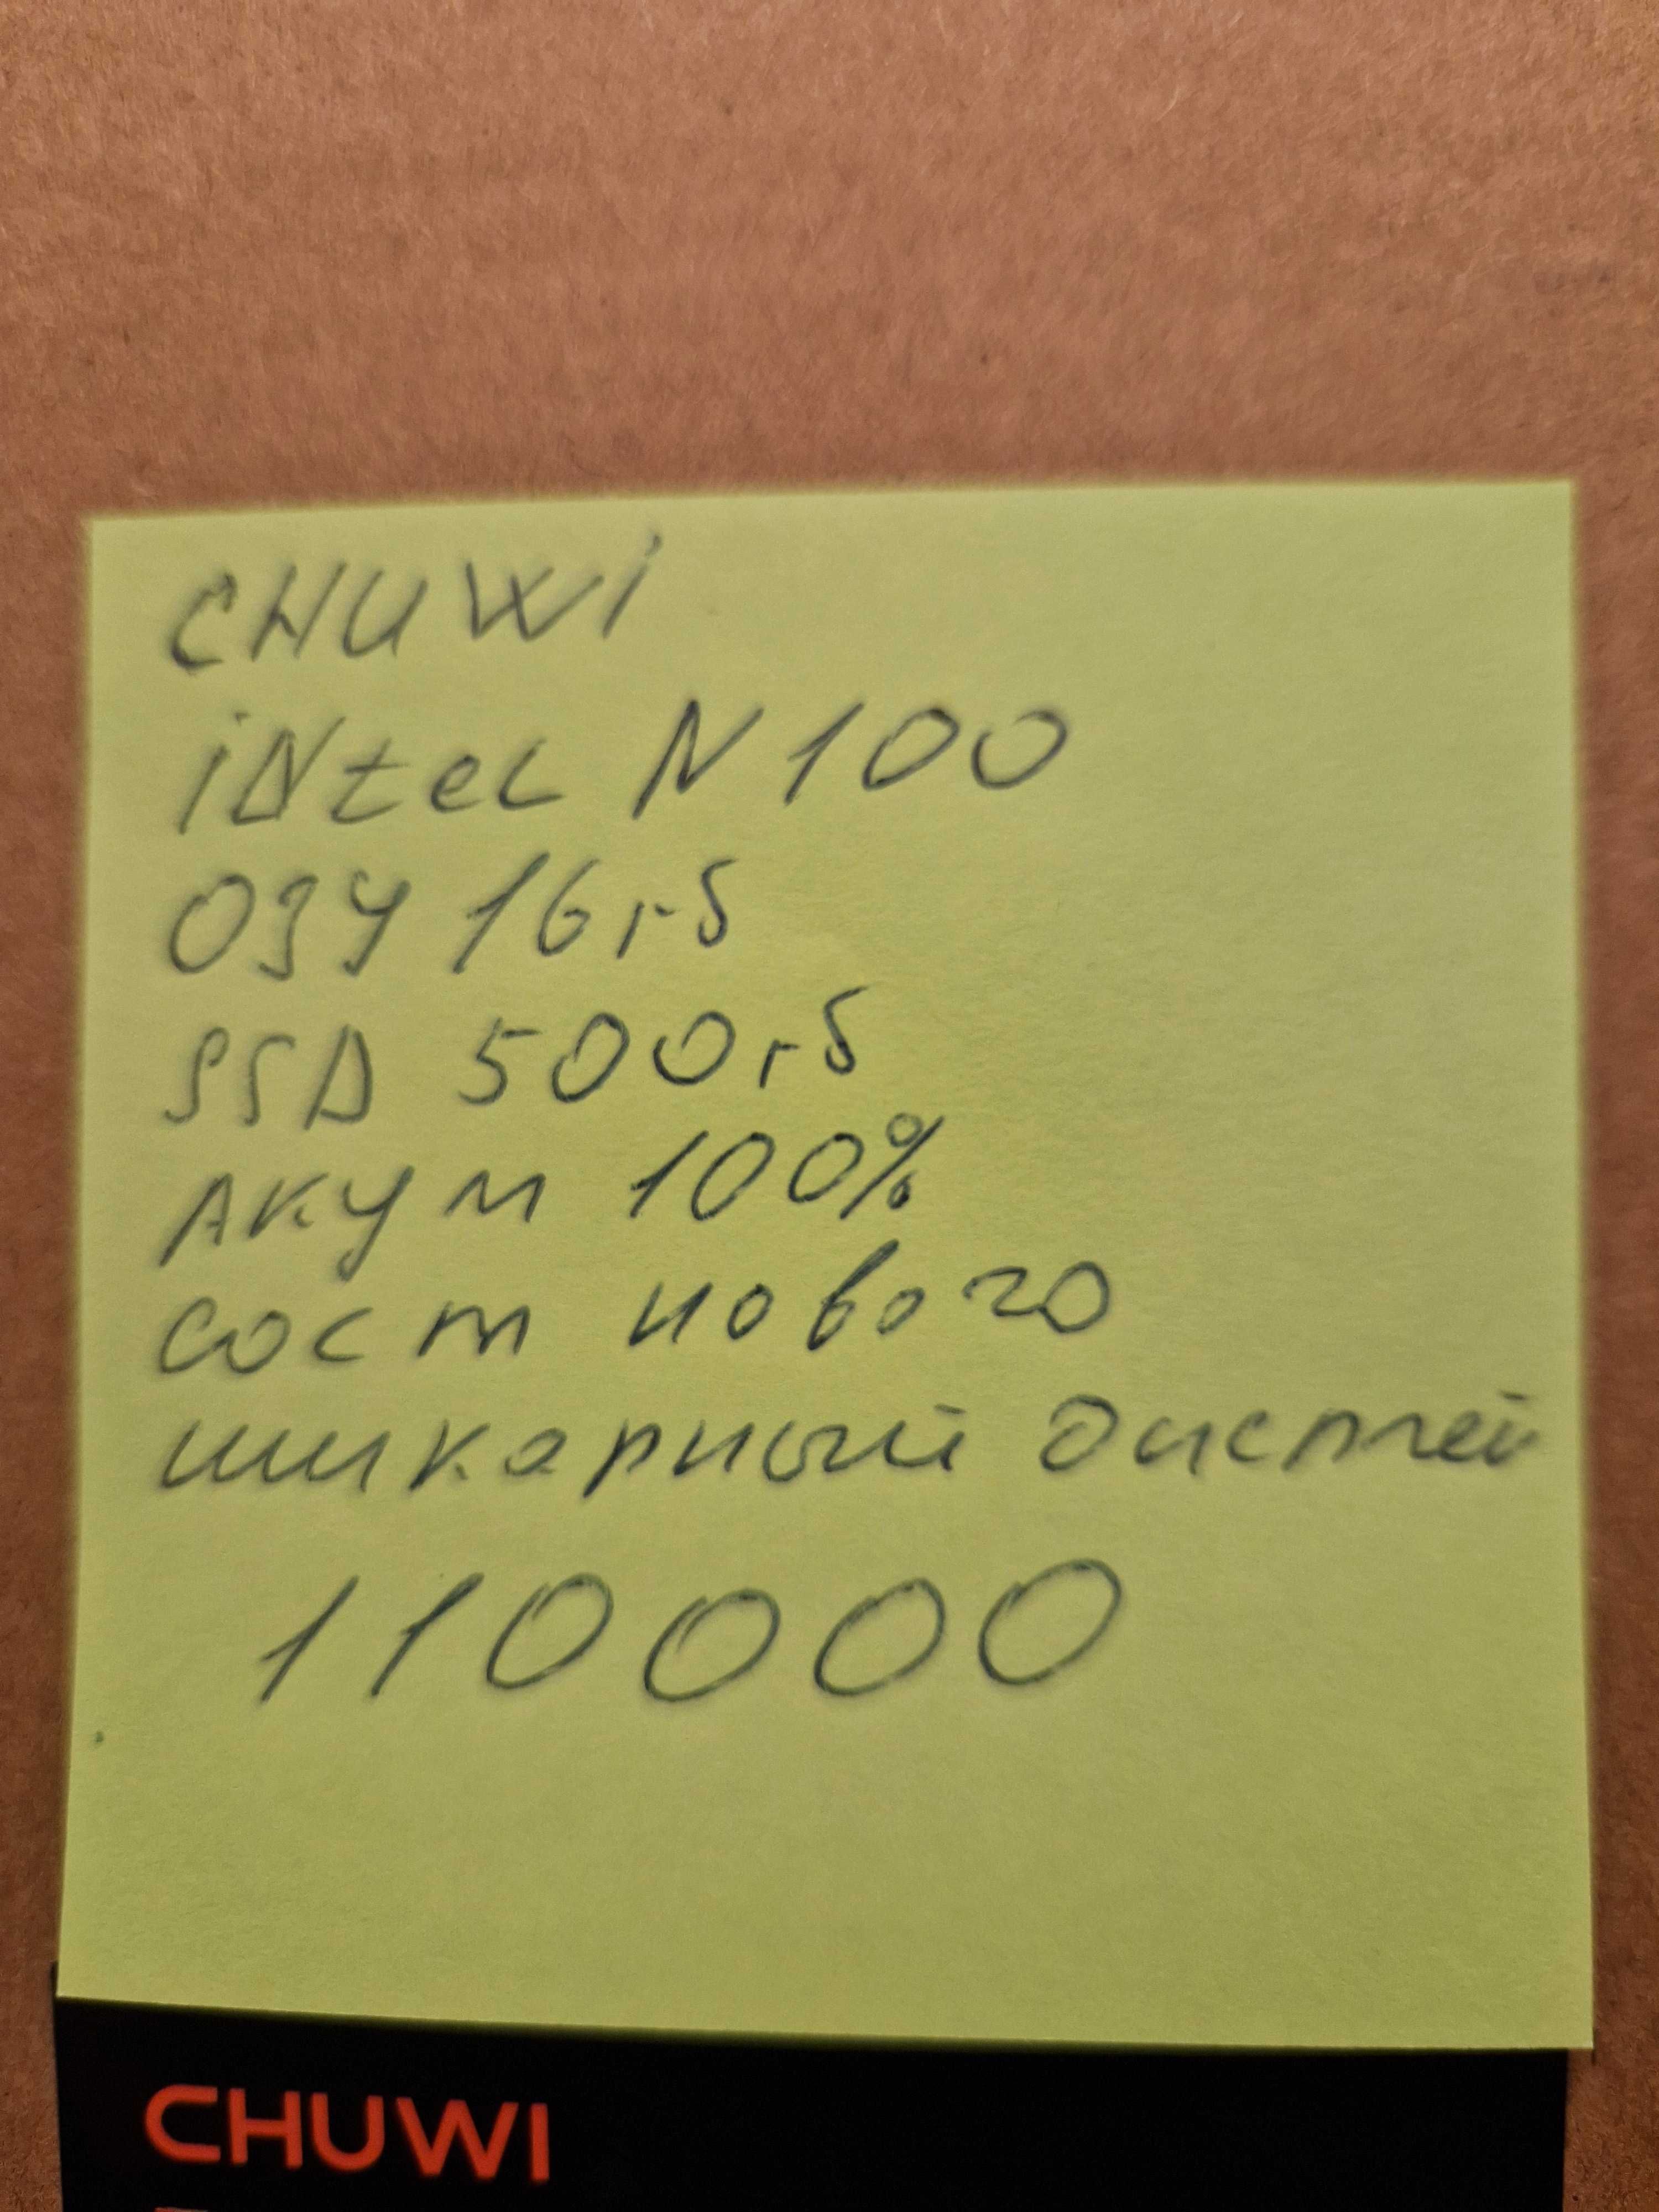 CHUWi
iNteL N100
ОЗУ 16гб
SSD 500гб
Акум 100%
сост нового
шикарный дисплей
110000
CHUWI